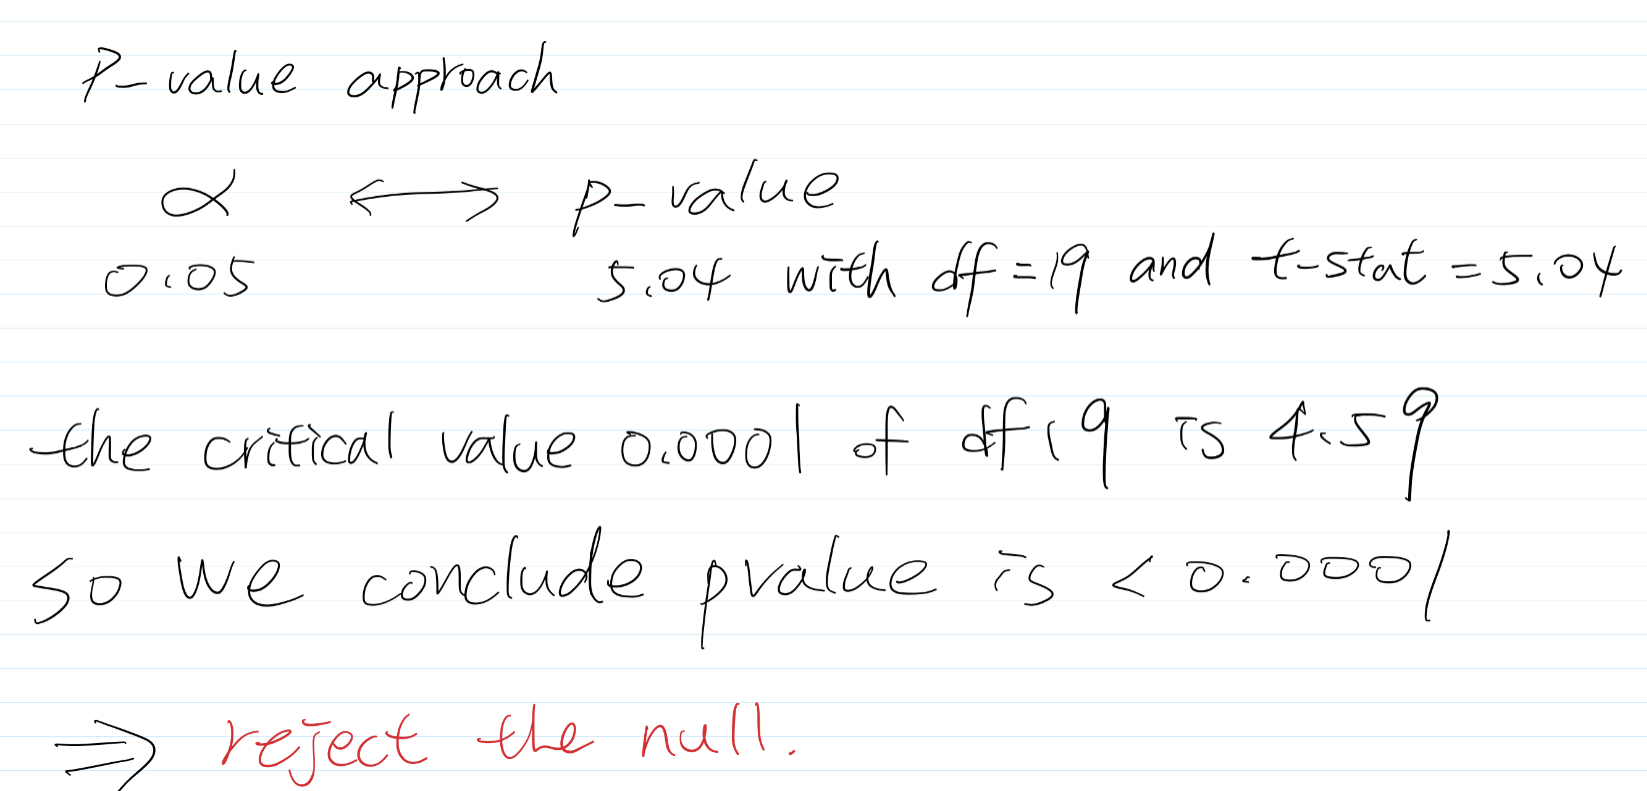 P-value approach
α ⟷ p-value
0.05 5.04 with df=19 and t-stat=5.04
the critical value 0.0001 of df19 is 4.59
so we conclude pvalue is < 0.0001
⇒ reject the null.